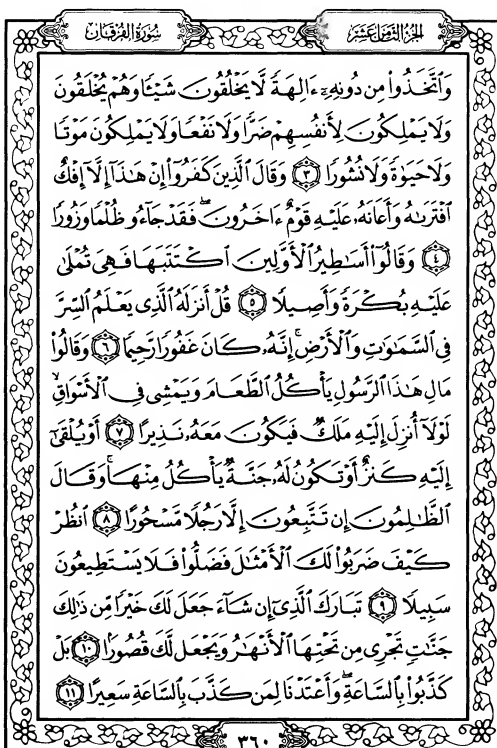 سُورَةُ الفُرْقَان
الجُزْءُ الثَّامِنُ عَشَرَ
وَٱتَّخَذُوا۟ مِن دُونِهِۦٓ ءَالِهَةً لَّا يَخْلُقُونَ شَيْـًٔا وَهُمْ يُخْلَقُونَ
وَلَا يَمْلِكُونَ لِأَنفُسِهِمْ ضَرًّا وَلَا نَفْعًا وَلَا يَمْلِكُونَ مَوْتًا
وَلَا حَيَوٰةً وَلَا نُشُورًا ٣ وَقَالَ ٱلَّذِينَ كَفَرُوٓا۟ إِنْ هَٰذَآ إِلَّآ إِفْكٌ
ٱفْتَرَىٰهُ وَأَعَانَهُۥ عَلَيْهِ قَوْمٌ ءَاخَرُونَ ۖ فَقَدْ جَآءُو ظُلْمًا وَزُورًا
٤ وَقَالُوٓا۟ أَسَٰطِيرُ ٱلْأَوَّلِينَ ٱكْتَتَبَهَا فَهِىَ تُمْلَىٰ
عَلَيْهِ بُكْرَةً وَأَصِيلًا ٥ قُلْ أَنزَلَهُ ٱلَّذِى يَعْلَمُ ٱلسِّرَّ
فِى ٱلسَّمَٰوَٰتِ وَٱلْأَرْضِ ۚ إِنَّهُۥ كَانَ غَفُورًا رَّحِيمًا ٦ وَقَالُوا۟
مَالِ هَٰذَا ٱلرَّسُولِ يَأْكُلُ ٱلطَّعَامَ وَيَمْشِى فِى ٱلْأَسْوَاقِ ۙ
لَوْلَآ أُنزِلَ إِلَيْهِ مَلَكٌ فَيَكُونَ مَعَهُۥ نَذِيرًا ٧ أَوْ يُلْقَىٰٓ
إِلَيْهِ كَنزٌ أَوْ تَكُونُ لَهُۥ جَنَّةٌ يَأْكُلُ مِنْهَا ۚ وَقَالَ
ٱلظَّٰلِمُونَ إِن تَتَّبِعُونَ إِلَّا رَجُلًا مَّسْحُورًا ٨ ٱنظُرْ
كَيْفَ ضَرَبُوا۟ لَكَ ٱلْأَمْثَٰلَ فَضَلُّوا۟ فَلَا يَسْتَطِيعُونَ
سَبِيلًا ٩ تَبَارَكَ ٱلَّذِىٓ إِن شَآءَ جَعَلَ لَكَ خَيْرًا مِّن ذَٰلِكَ
جَنَّٰتٍ تَجْرِى مِن تَحْتِهَا ٱلْأَنْهَٰرُ وَيَجْعَل لَّكَ قُصُورًۢا ١٠ بَلْ
كَذَّبُوا۟ بِٱلسَّاعَةِ ۖ وَأَعْتَدْنَا لِمَن كَذَّبَ بِٱلسَّاعَةِ سَعِيرًا ١١
٣٦٠